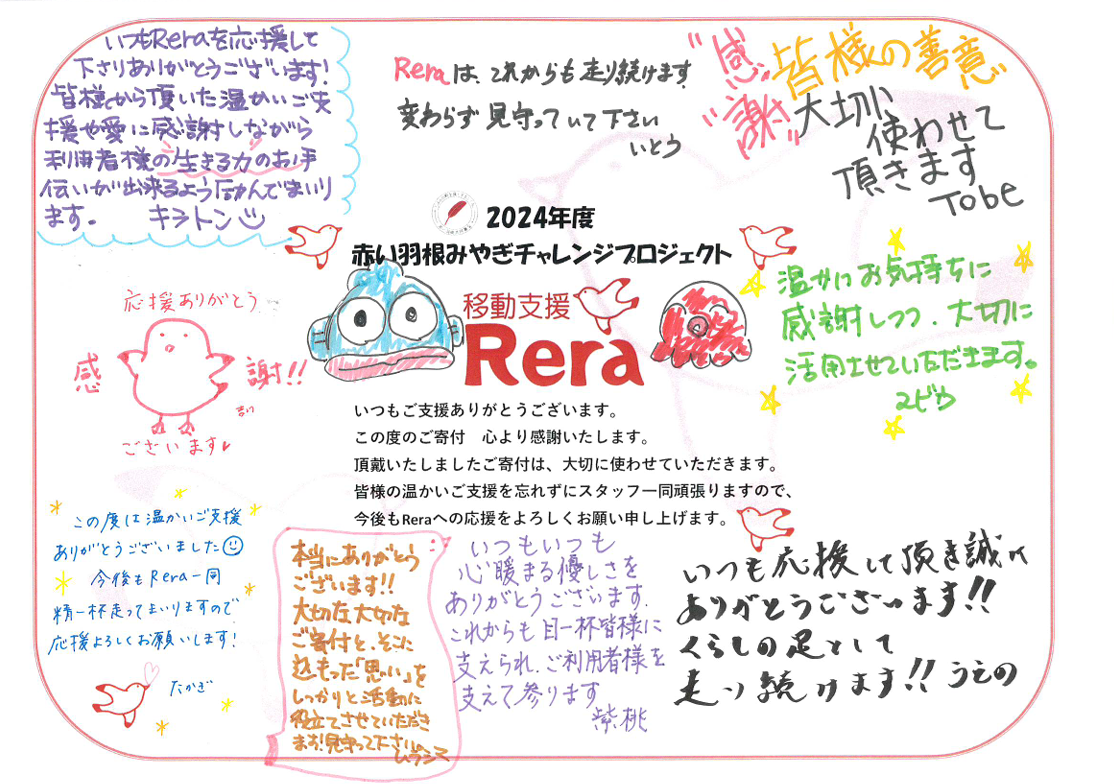 いつもReraを応援して
下さりありがとうございます!
皆様から頂いた温かいご支
援や愛に感謝しながら
利用者様の生きる力のお手
伝いが出来るよう励んでまいり
ます。 キラトン
Reraは、これからも走り続けます
変わらず見守っていて下さい
いとう
"感謝"
皆様の善意
大切に
使わせて
頂きます
Tobe
2024年度
赤い羽根みやぎチャレンジプロジェクト
移動支援
Rera
応援ありがとう
感 謝!!
ございます
温かいお気持ちに
感謝しつつ、大切に
活用させていただきます。
いつもご支援ありがとうございます。
この度のご寄付 心より感謝いたします。
頂戴いたしましたご寄付は、大切に使わせていただきます。
皆様の温かいご支援を忘れずにスタッフ一同頑張りますので、
今後もReraへの応援をよろしくお願い申し上げます。
この度は温かいご支援
ありがとうございました
今後もRera一同
精一杯走ってまいりますので
応援よろしくお願いします!
たかぎ
本当にありがとう
ございます!!
大切な大切な
ご寄付と、そこに
込もった「思い」を
しっかりと活動に
役立てさせていただき
ます!見守って下さい。
ムラシマ
いつもいつも
心暖まる優しさを
ありがとうございます.
これからも目一杯皆様に
支えられ、ご利用者様を
支えて参ります
紫桃
いつも応援して頂き誠に
ありがとうございます!!
くらしの足として
走り続けます!! うえの